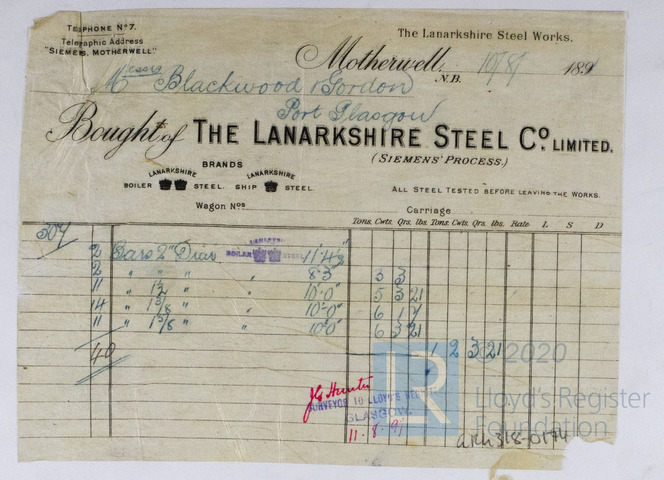 TELEPHONE Nº7.
Telegraphic Address
"SIEMENS, MOTHERWELL"
The Lanarkshire Steel Works.
Motherwell, N.B. 10/8/ 1891
Messrs Blackwood & Gordon
Port Glasgow
Bought of THE LANARKSHIRE STEEL Co. LIMITED.
(SIEMENS' PROCESS.)
BRANDS
LANARKSHIRE BOILER STEEL. LANARKSHIRE SHIP STEEL.
ALL STEEL TESTED BEFORE LEAVING THE WORKS.
Wagon Nos
Carriage
Tons. Cwts. Qrs. lbs. Tons. Cwts. Qrs. lbs. Rate L S D
307
2 Bars 2" Diar BOILER STEEL 11'4
2 " " " " 8'3" 3 3
11 " " " 10'0" 5 3 21
14 " 1 5/8 " 10'0" 6 1 7
11 " 1 3/8 " " 10'0" 6 3 21
40 1 2 3 21
© 2020
Lloyd's Register
Foundation
LR
J G Hunter
SURVEYOR TO LLOYD'S REG
GLASGOW.
11.8.91